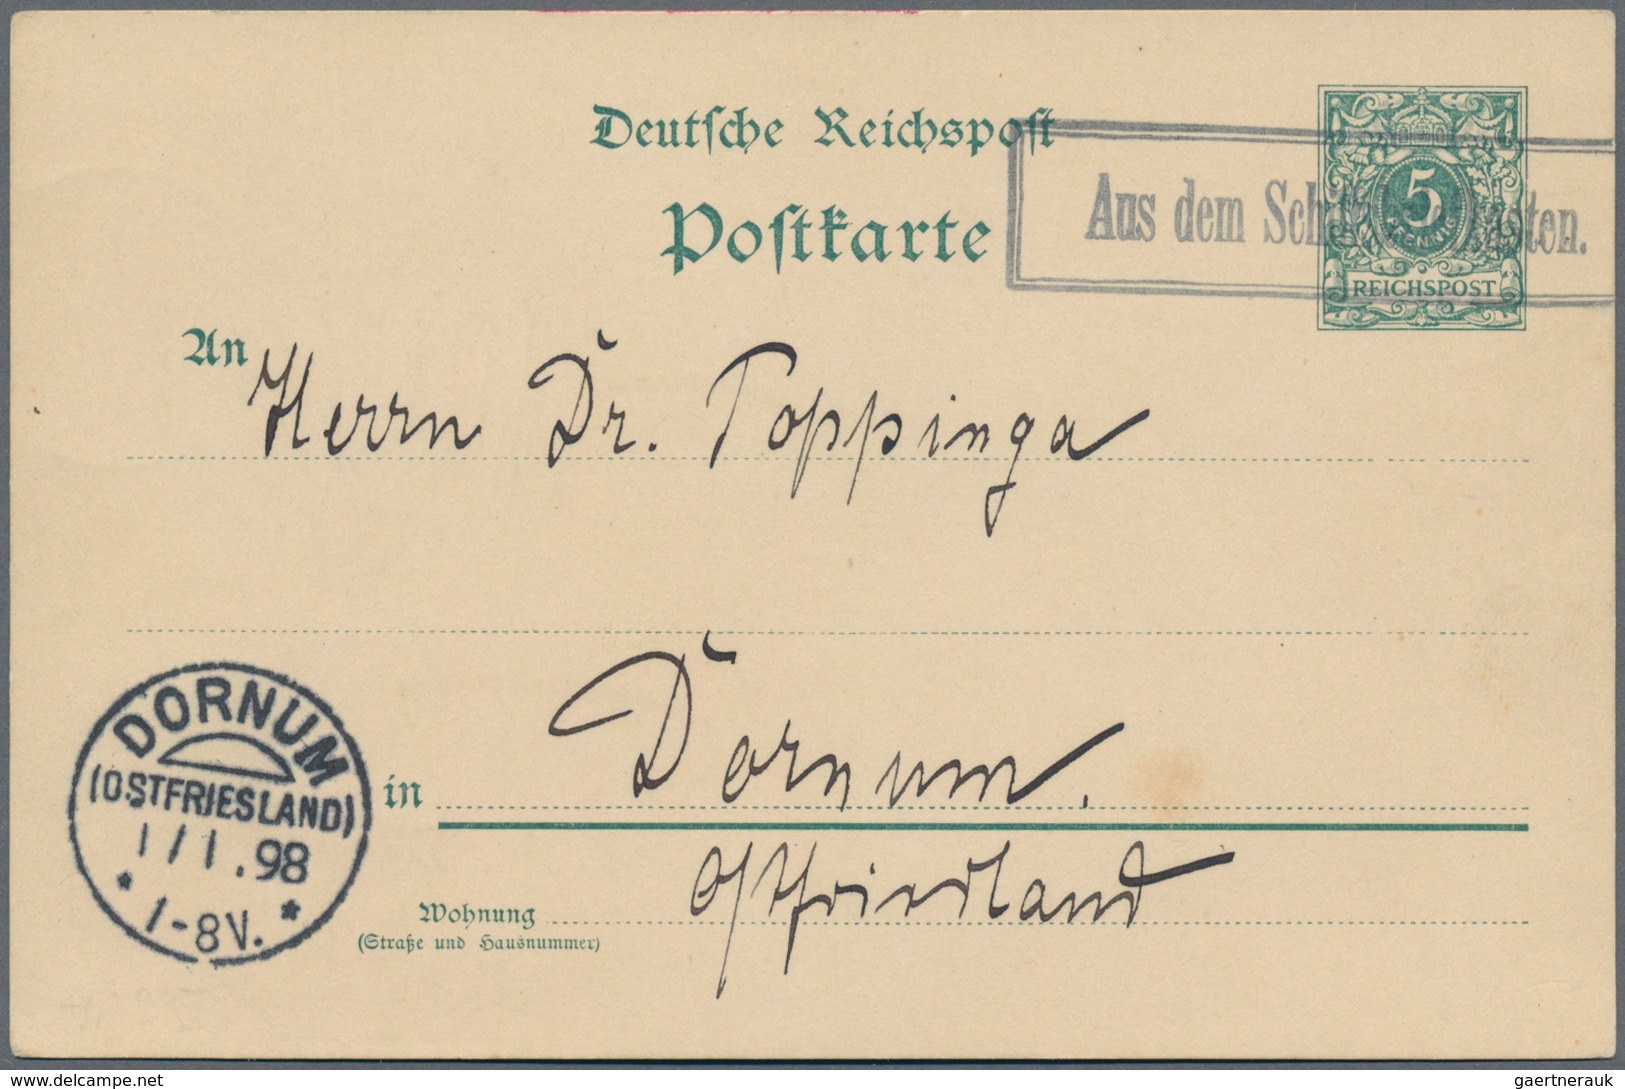 Deutsche Reichspost
Aus dem Schiffsbriefkasten.
5
PFENNIG
REICHSPOST
Postkarte
An Herrn Dr. Poppinga
DORNUM
(OSTFRIESLAND)
1/1.98
* 1-8V. *
in Dornum.
Ostfriesland
Wohnung
(Straße und Hausnummer)
delcampe.net
gaertnerauk